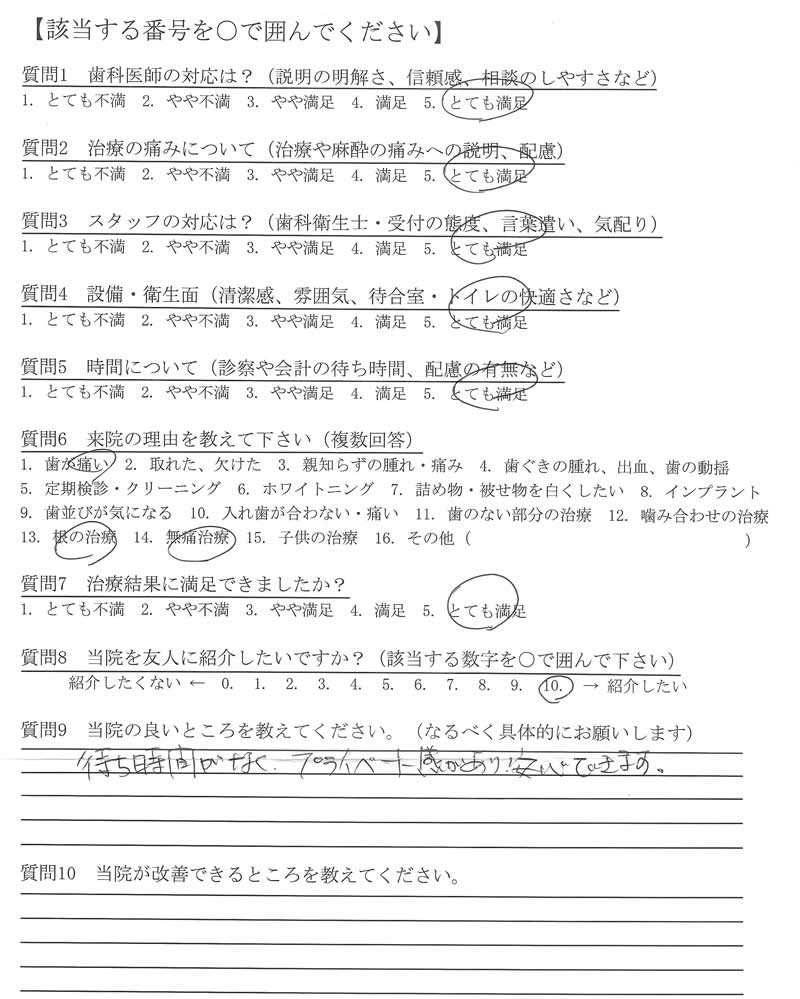 【該当する番号を○で囲んでください】
質問1 歯科医師の対応は？（説明の明解さ、信頼感、相談のしやすさなど）
1. とても不満 2. やや不満 3. やや満足 4. 満足 5. とても満足
質問2 治療の痛みについて（治療や麻酔の痛みへの説明、配慮）
1. とても不満 2. やや不満 3. やや満足 4. 満足 5. とても満足
質問3 スタッフの対応は？（歯科衛生士・受付の態度、言葉遣い、気配り）
1. とても不満 2. やや不満 3. やや満足 4. 満足 5. とても満足
質問4 設備・衛生面（清潔感、雰囲気、待合室・トイレの快適さなど）
1. とても不満 2. やや不満 3. やや満足 4. 満足 5. とても満足
質問5 時間について（診察や会計の待ち時間、配慮の有無など）
1. とても不満 2. やや不満 3. やや満足 4. 満足 5. とても満足
質問6 来院の理由を教えて下さい（複数回答）
1. 歯が痛い 2. 取れた、欠けた 3. 親知らずの腫れ・痛み 4. 歯ぐきの腫れ、出血、歯の動揺
5. 定期検診・クリーニング 6. ホワイトニング 7. 詰め物・被せ物を白くしたい 8. インプラント
9. 歯並びが気になる 10. 入れ歯が合わない・痛い 11. 歯のない部分の治療 12. 噛み合わせの治療
13. 根の治療 14. 無痛治療 15. 子供の治療 16. その他（ ）
質問7 治療結果に満足できましたか？
1. とても不満 2. やや不満 3. やや満足 4. 満足 5. とても満足
質問8 当院を友人に紹介したいですか？（該当する数字を○で囲んで下さい）
紹介したくない ← 0. 1. 2. 3. 4. 5. 6. 7. 8. 9. 10. → 紹介したい
質問9 当院の良いところを教えてください。（なるべく具体的にお願いします）
待ち時間がなく、プライベート感があり安心できます。
質問10 当院が改善できるところを教えてください。